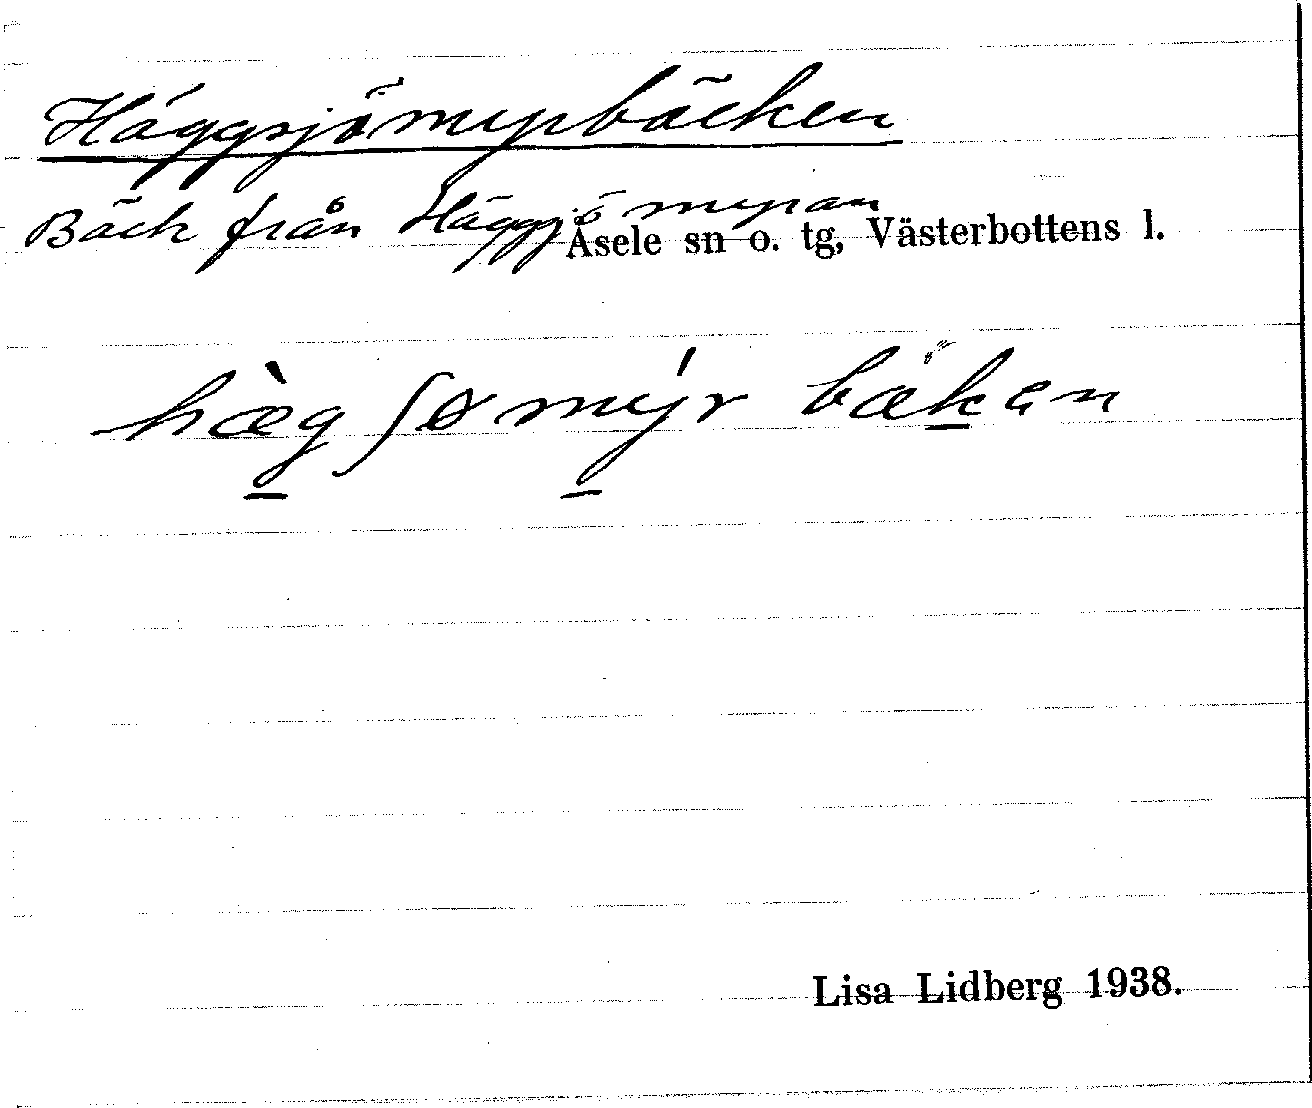 Häggsjömyrbäcken
Bäck från Häggsjömyran
Åsele sn o. tg, Västerbottens l.
hæ̀gʃømýrbækən
Lisa Lidberg 1938.